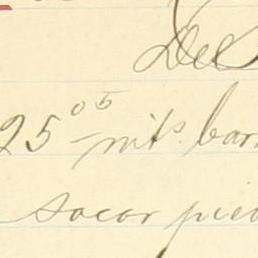 De S
25⁰⁵ mts. barr
sacar pied